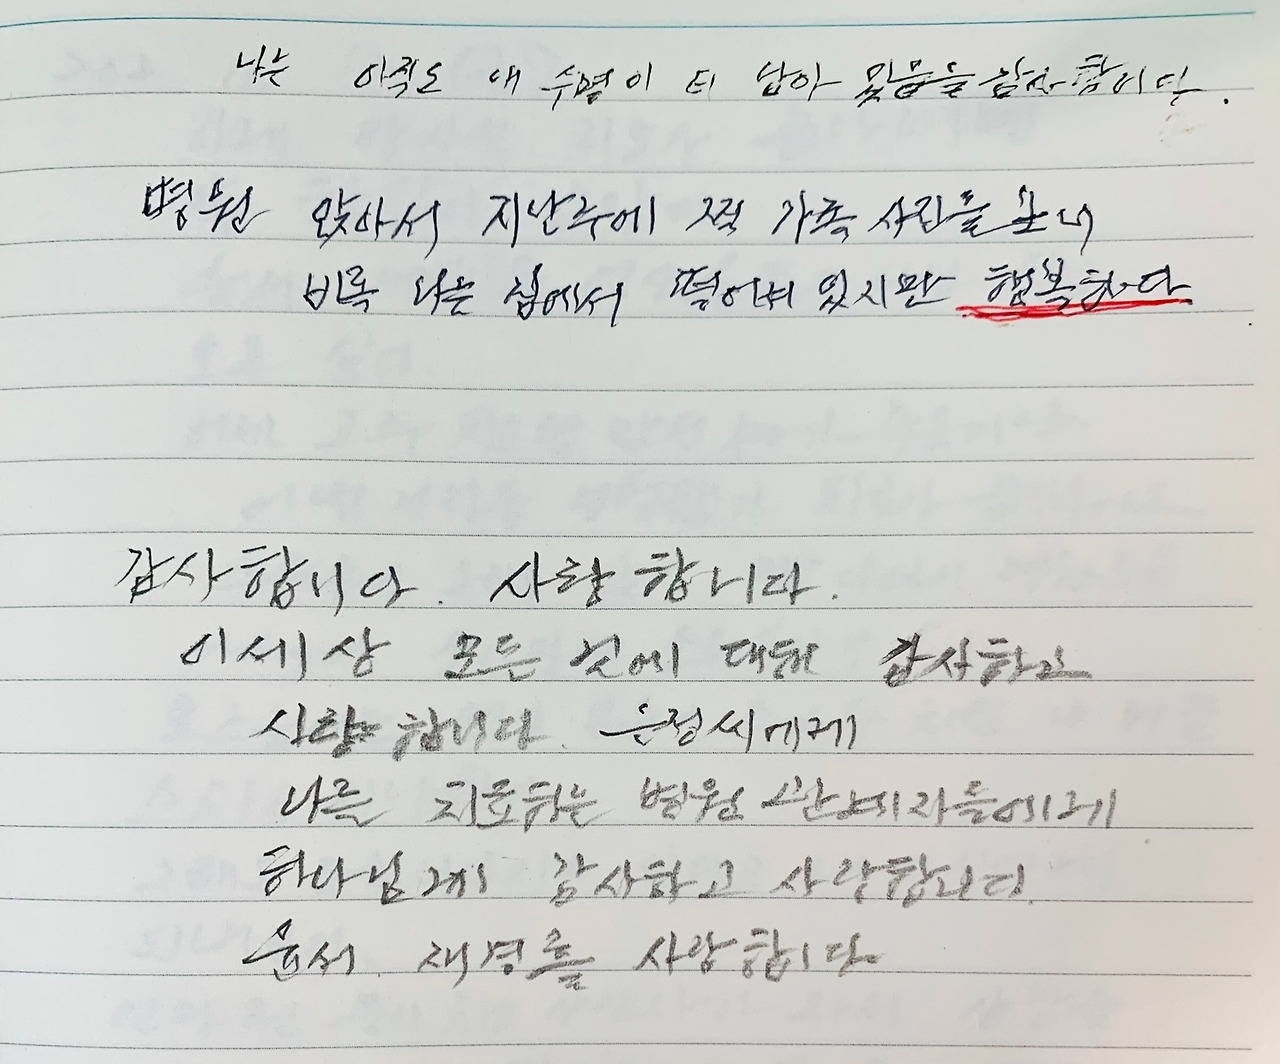 나는 아직도 내 수명이 더 남아 있음을 감사합니다.
병원 앉아서 지난주에 찍 가족 사진을 보니
비록 나는 집에서 떨어져 있지만 행복하다
감사합니다. 사랑합니다.
이세상 모든 것에 대해 감사하고
사랑합니다. 은정씨에게
나를 치료하는 병원 관계자들에게
하나님께 감사하고 사랑합니다.
윤서. 재경를 사랑합니다.